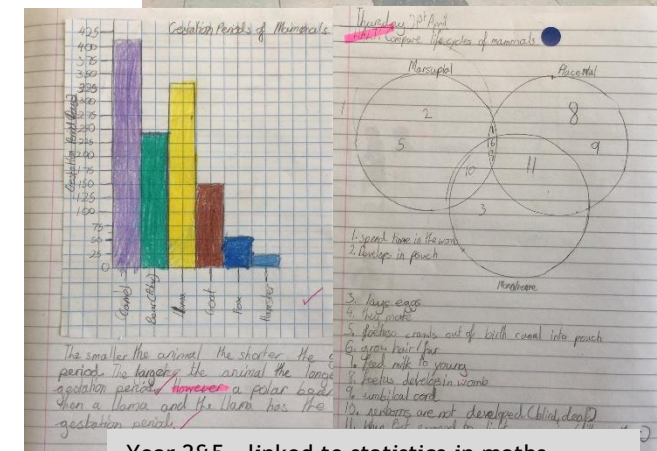 Gestation Periods of Mammals
425
400
375
350
325
250
200
175
150
125
100
75
50
25
0
Gestation Period (days)
(Camel)
Llama
Goat
Hamster
The smaller the animal the shorter the g
period. The larger the animal the longe
gestation period. however a polar bea
then a llama and the llama has the
gestation period.
Thursday April
Compare lifecycles of mammals
Marsupial
Placental
2
8
5
9
11
10
3
1. Spend time in the
2. Develops in pouch
Monotreme
3. lays eggs
4. they mate
5. foetus crawls out of birth canal into pouch
6. grow hair/fur
7. feed milk to young
8. foetus develops in womb
9. umbilical cord
10. newborns are not developed (blind, deaf)
11.
Year 2&5 – linked to statistics in maths